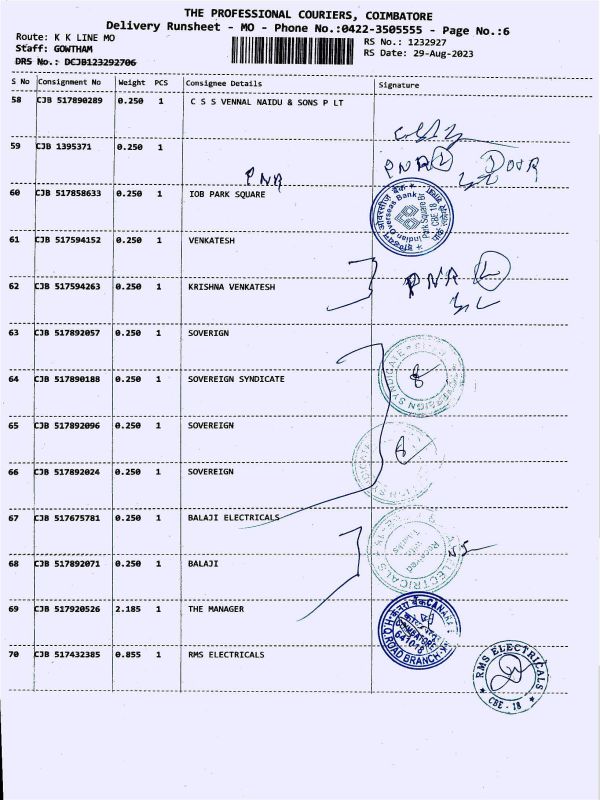 THE PROFESSIONAL COURIERS, COIMBATORE
Delivery Runsheet - MO - Phone No.:0422-3505555 - Page No.:6
Route: K K LINE MO
RS No.: 1232927
Staff: GOWTHAM
RS Date: 29-Aug-2023
DRS No.: DCJB123292706
S No Consignment No Weight PCS Consignee Details Signature
58 CJB 517890289 0.250 1 C S S VENNAL NAIDU & SONS P LT
59 CJB 1395371 0.250 1
PNA
PNA
60 CJB 517858633 0.250 1 IOB PARK SQUARE
Indian Overseas Bank
Park Square Br
CBE 18
61 CJB 517594152 0.250 1 VENKATESH
PNA
62 CJB 517594263 0.250 1 KRISHNA VENKATESH
63 CJB 517892057 0.250 1 SOVERIGN
64 CJB 517890188 0.250 1 SOVEREIGN SYNDICATE
65 CJB 517892096 0.250 1 SOVEREIGN
66 CJB 517892024 0.250 1 SOVEREIGN
67 CJB 517675781 0.250 1 BALAJI ELECTRICALS
Received
68 CJB 517892071 0.250 1 BALAJI
ELECTRICALS
69 CJB 517920526 2.185 1 THE MANAGER
COIMBATORE
641018
ROAD BRANCH
70 CJB 517432385 0.855 1 RMS ELECTRICALS
RMS ELECTRICALS
CBE - 18